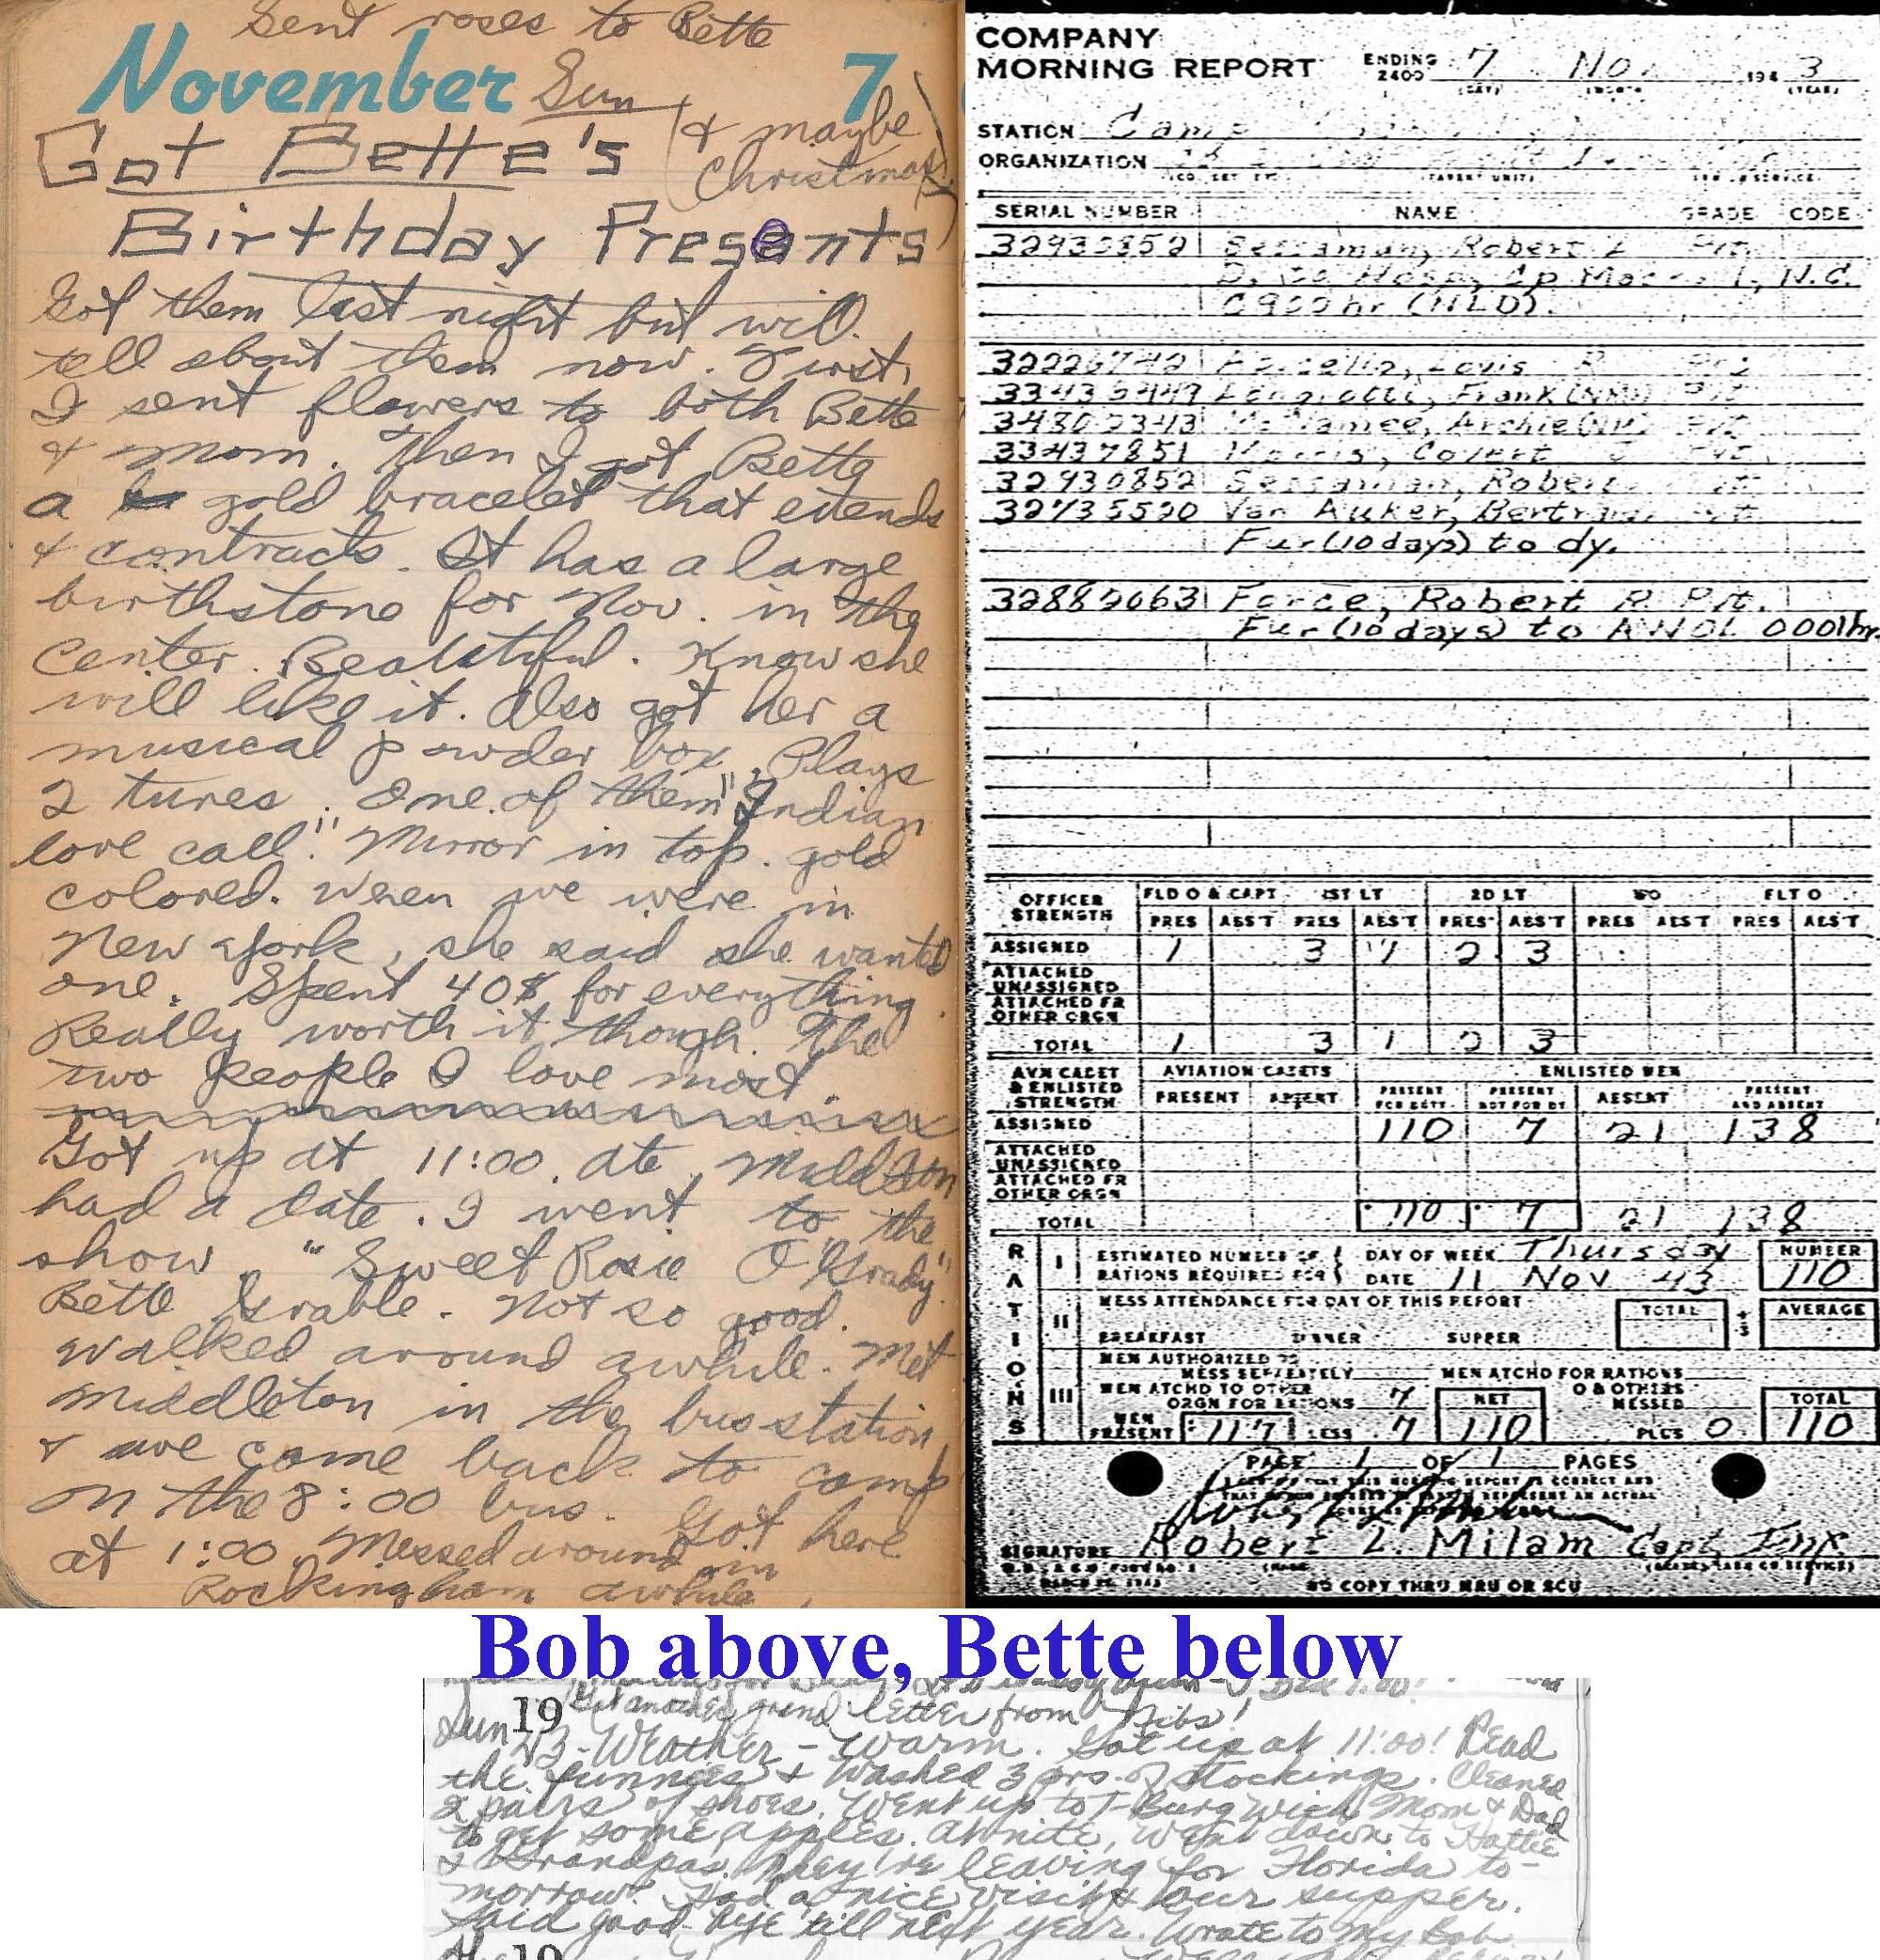 Sent roses to Bette
November Sun 7
Got Bette's (& maybe
Christmas)
Birthday Presents
Got them last night but will
tell about them now. First,
I sent flowers to both Bette
& Mom. Then I got Bette
a gold bracelet that extends
& contracts. It has a large
birthstone for Nov. in the
center. Beautiful. Know she
will like it. Also got her a
musical powder box. Plays
2 tunes. One of them "Indian
love call." Mirror in top. gold
colored. When we were in
New York, she said she wanted
one. Spent 40$ for everything.
Really worth it though. The
two people I love most.
Got up at 11:00. Ate. Middleton
had a date. I went to the
show. "Sweet Rosie O'Grady".
Bette Grable. Not so good.
Walked around awhile. Met
Middleton in the bus station
& we come back to camp
on the 8:00 bus. Got here
at 1:00. Messed around in
Rockingham awhile.
COMPANY
MORNING REPORT ENDING 2400 7 No. 194 3
(DAY) (MONTH) (YEAR)
STATION Camp
ORGANIZATION
SERIAL NUMBER NAME GRADE CODE
32930852 Sessaman, Robert L Pvt.
Hosp, Cp N.C.
0900hr (NLD).
32226742 Louis R
Frank (NMI) Pvt
Archie (NMI) Pvt
33437851
32930852 Sessaman, Robert Pvt
32735520 Van Auker, Bertram Pvt
Fur (10 days) to dy.
32882063 Force, Robert R Pvt.
Fur (10 days) to AWOL 0001hr.
OFFICER STRENGTH FLD O & CAPT 1ST LT 2D LT WO FLT O
PRES ABS'T PRES ABS'T PRES ABS'T PRES ABS'T PRES ABS'T
ASSIGNED 1 3 1 2 3
ATTACHED UNASSIGNED
ATTACHED FR OTHER ORGN
TOTAL 1 3 1 2 3
AVN CADET & ENLISTED STRENGTH AVIATION CADETS ENLISTED MEN
PRESENT ABSENT PRESENT FOR DUTY PRESENT NOT FOR DY ABSENT PRESENT AND ABSENT
ASSIGNED 110 7 21 138
ATTACHED UNASSIGNED
ATTACHED FR OTHER ORGN
TOTAL 110 7 21 138
RATIONS
I ESTIMATED NUMBER OF RATIONS REQUIRED FOR DAY OF WEEK Thursday NUMBER
DATE 11 Nov 43 110
II MESS ATTENDANCE FOR DAY OF THIS REPORT TOTAL ÷3 AVERAGE
BREAKFAST DINNER SUPPER
III MEN AUTHORIZED TO MESS SEPARATELY MEN ATCHD FOR RATIONS
MEN ATCHD TO OTHER ORGN FOR RATIONS 7 NET O & OTHERS MESSED TOTAL
MEN PRESENT 117 LESS 7 110 PLUS 0 110
PAGE 1 OF 1 PAGES
Robert L. Milam Capt, Inf
SIGNATURE
NO COPY THRU MRU OR SCU
Bob above, Bette below
Got another grand letter from Nibs!
Sun 19
43 - Weather - Warm. Got up at 11:00! Read
the funnies & washed 3 prs. of stockings. Cleaned
2 pairs of shoes. Went up to T-Burg with Mom & Dad
to get some apples. At nite, went down to Hattie
& Grandpas. They're leaving for Florida to-
morrow. Had a nice visit & our supper.
Said good-bye 'till next year. Wrote to my Bob.
19